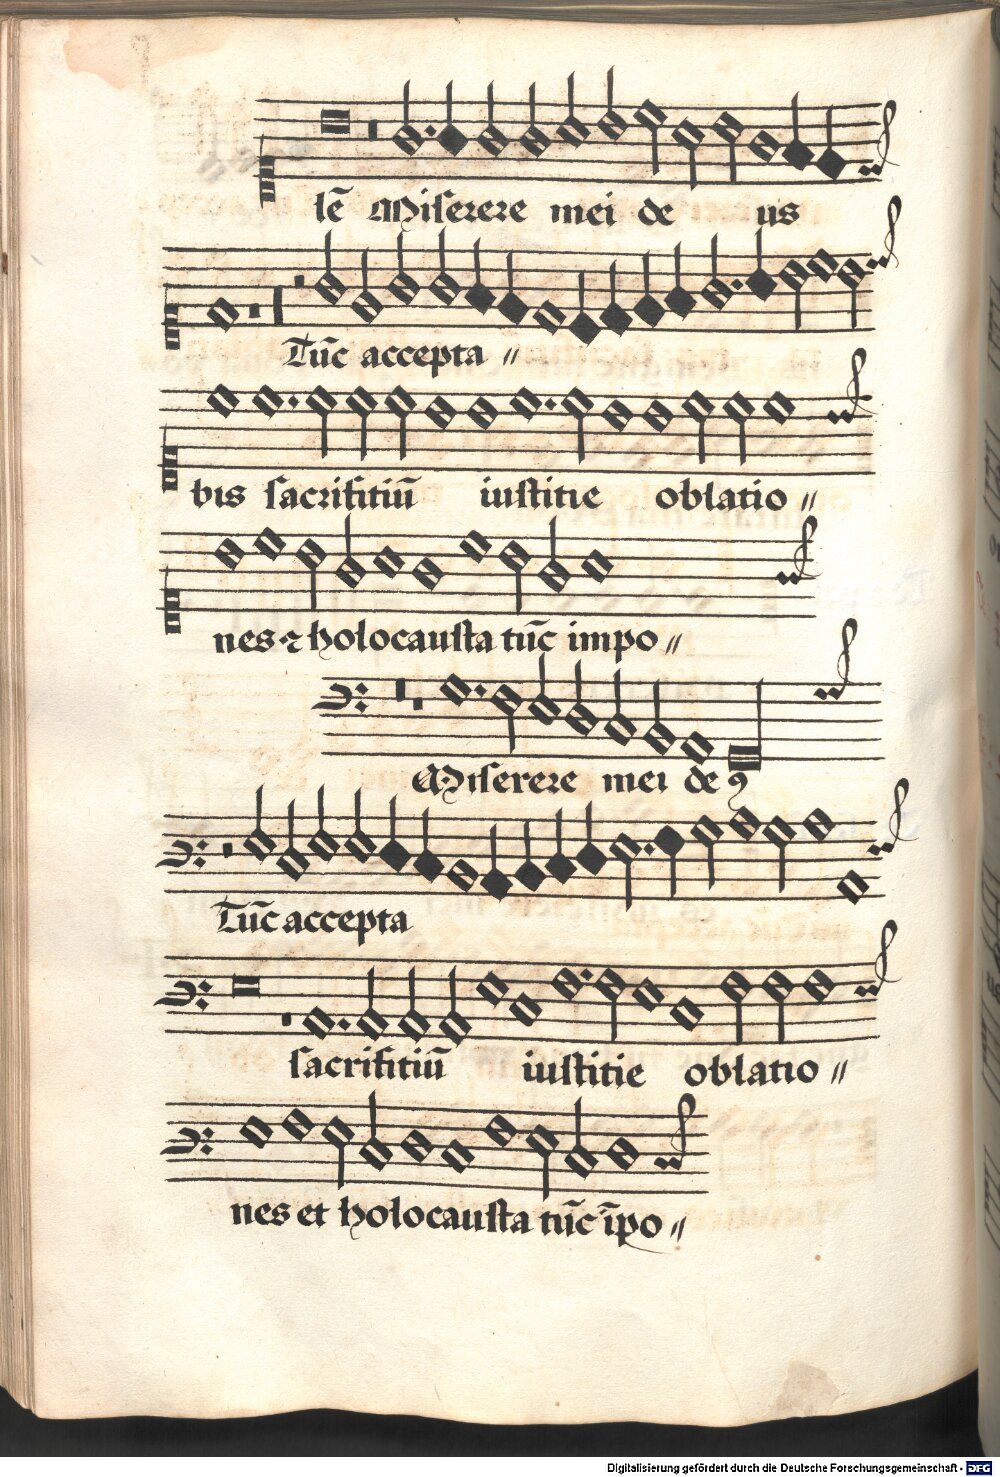 lē Miserere mei de us
Tūc accepta //
bis sacrifitiū iustitie oblatio //
nes ⁊ holocausta tūc impo //
Miserere mei deꝰ
Tūc accepta
sacrifitiū iustitie oblatio //
nes et holocausta tūc īpo //
Digitalisierung gefördert durch die Deutsche Forschungsgemeinschaft - DFG